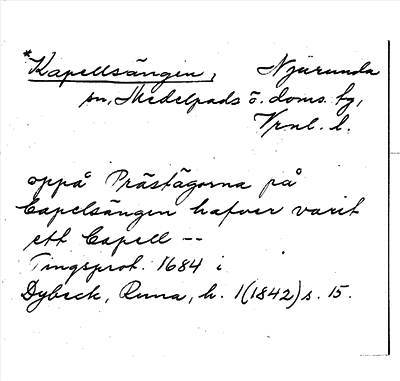 *Kapellsängen, Njurunda
sn, Medelpads ö. doms. fg,
Vrnl. l.
oppå Prästägorna på
Capelsängen hafver varit
ett Capell --
Tingsprot. 1684 i
Dybeck, Runa, h. 1(1842) s. 15.